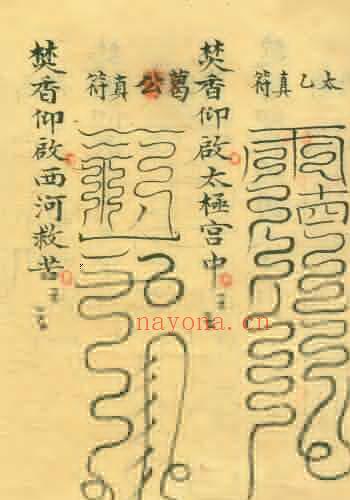 太乙真符
焚香仰啟太極宮中
葛公真符
焚香仰啟西河救苦
nayona.cn